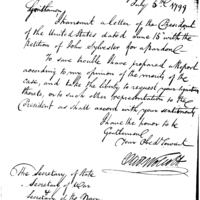 July 5th 1799
Gentlemen
I transmit a letter of the President
of the United States dated June 18 with the
Petition of John Sylvester for a pardon.
To save trouble I have prepared a Report
according to my opinion of the merits of the
case, and take the liberty to request your signatures
thereto, or to such other representation to the
President as shall accord with your sentiments
I have the honor to be
Gentlemen
Your Obed Servant
The Secretary of State
Secretary of War
Secretary of the Navy